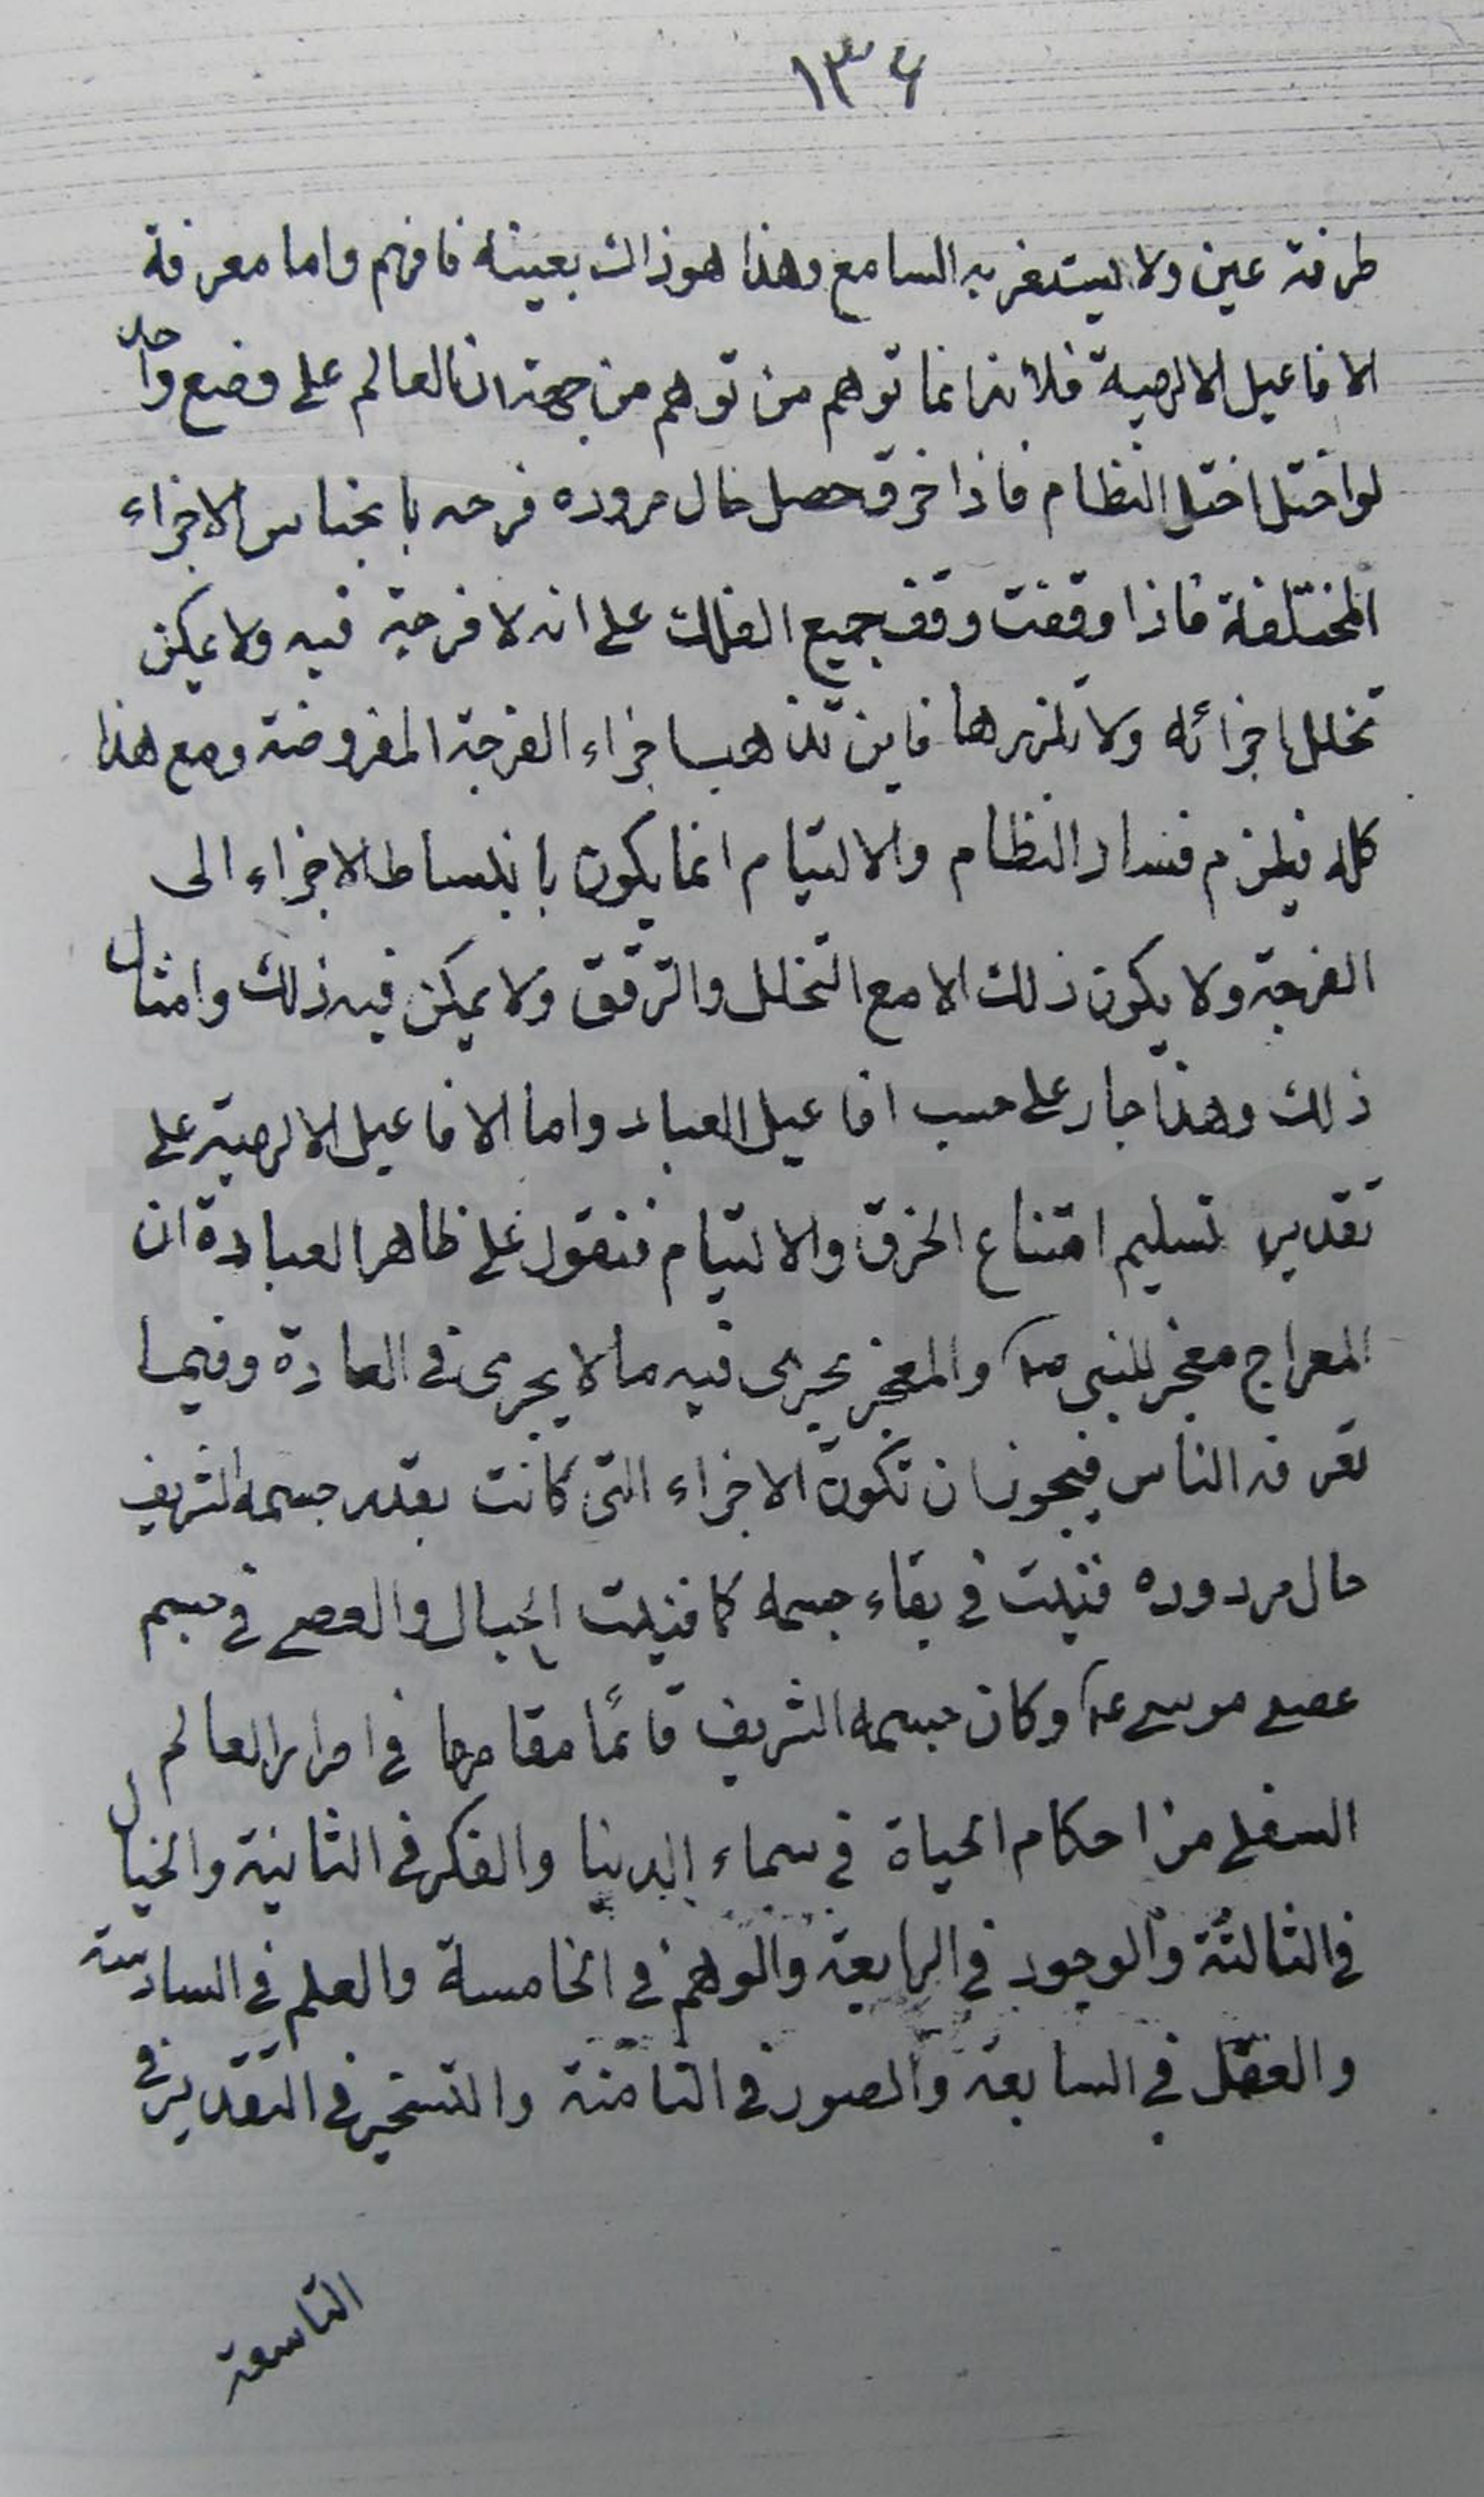 ١٣٤
طرفة عين ولا يستغربه السامع وهذا هو ذاك بعينه فافهم واما معرفة
الافاعيل الالهية فلانه انما توهم من توهم من جهة ان العالم على وضع واحد
لو اختل اختل النظام فاذا خرق حصل حال مروره فرجه بانحباس الاجزاء
المختلفة فاذا وقفت وقف جميع الفلك على انه لا فرجة فيه ولا يمكن
تخلل اجزائه ولا تلززها فاين تذهب اجزاء الفرجة المفروضة ومع هذا
كله فيلزم فساد النظام والالتيام انما يكون بانبساط الاجزاء الى
الفرجة ولا يكون ذلك الا مع التخلل والترقق ولا يمكن فيه ذلك وامثال
ذلك وهذا جار على حسب افاعيل العباد واما الافاعيل الالهية على
تقدير تسليم امتناع الخرق والالتيام فنقول على ظاهر العبادة ان
المعراج معجز للنبي ص والمعجز يجرى فيه ما لا يجرى فى العادة وفيما
تعرفه الناس فيجوز ان تكون الاجزاء التى كانت بقدر جسمه الشريف
حال مروره فنيت فى بقاء جسمه كما فنيت الحبال والعصى فى جسم
عصى موسى ع وكان جسمه الشريف قائمًا مقامها فى امرار العالم
السفلى من احكام الحياة فى سماء الدنيا والفكر فى الثانية والخيال
فى الثالثة والوجود فى الرابعة والوهم فى الخامسة والعلم فى السادسة
والعقل فى السابعة والصور فى الثامنة والتسخير فى التقدير فى
التاسعة